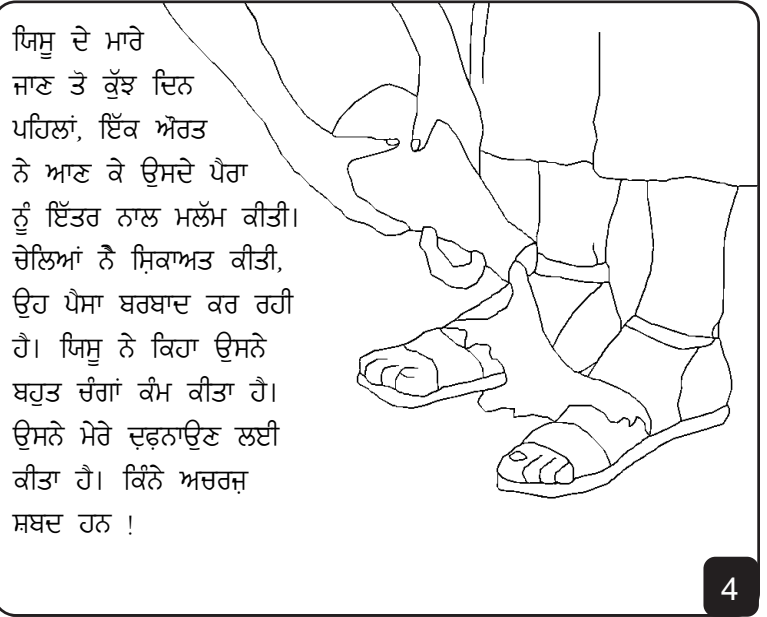 ਯਿਸੂ ਦੇ ਮਾਰੇ
ਜਾਣ ਤੋ ਕੁੱਝ ਦਿਨ
ਪਹਿਲਾਂ, ਇੱਕ ਔਰਤ
ਨੇ ਆਣ ਕੇ ਉਸਦੇ ਪੈਰਾ
ਨੂੰ ਇੱਤਰ ਨਾਲ ਮਲੱਮ ਕੀਤੀ।
ਚੇਲਿਆਂ ਨੇੈ ਸ਼ਿਕਾਅਤ ਕੀਤੀ,
ਉਹ ਪੈਸਾ ਬਰਬਾਦ ਕਰ ਰਹੀ
ਹੈ। ਯਿਸੂ ਨੇ ਕਿਹਾ ਉਸਨੇ
ਬਹੁਤ ਚੰਗਾਂ ਕੰਮ ਕੀਤਾ ਹੈ।
ਉਸਨੇ ਮੇਰੇ ਦਫ਼ਨਾਉਣ ਲਈ
ਕੀਤਾ ਹੈ। ਕਿੰਨੇ ਅਚਰਜ਼
ਸ਼ਬਦ ਹਨ !
4